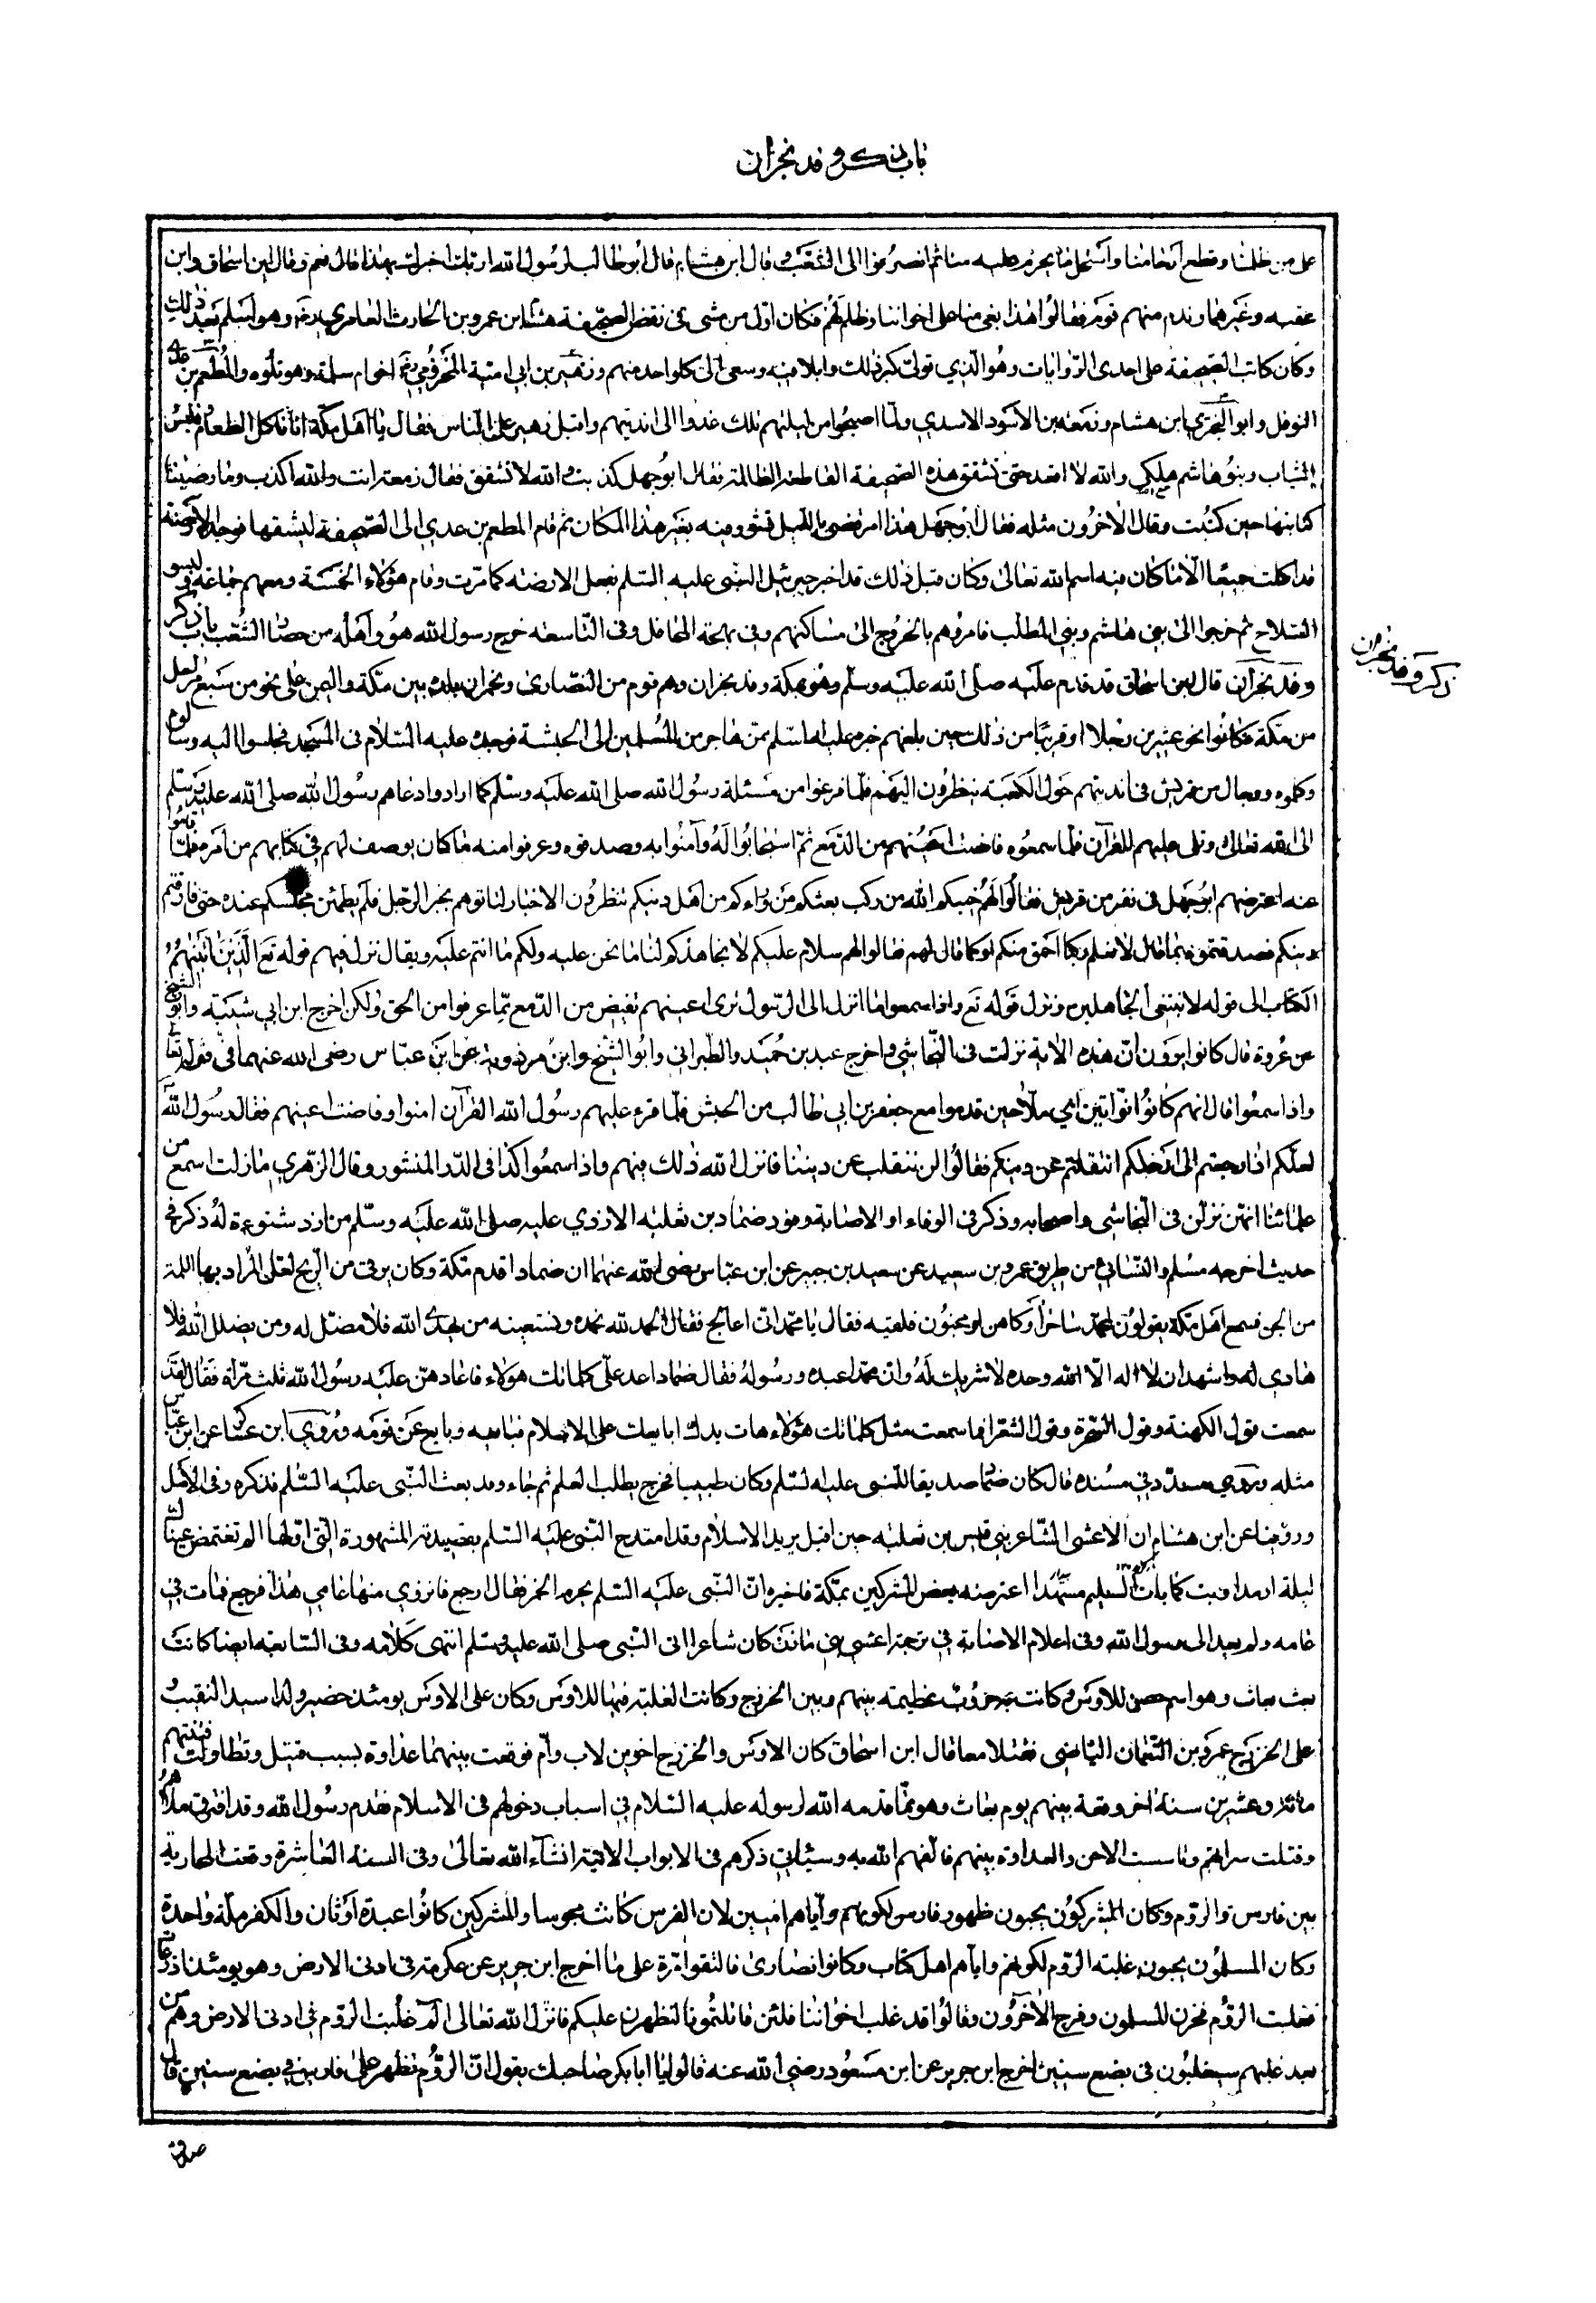 باب ذكر وفد نجران
على من ظلمنا وقطع ارحامنا واستحل ما يحرم عليه منا ثم انصرفوا الى الشعب وقال ابن هشام قال ابو طالب لرسول الله اربك اخبرك بهذا قال نعم وقال ابن اسحاق وابن
عقبه وغيرهما وندم منهم قوم فقالوا هذا بغي منا على اخواننا وظلم لهم فكان اول من مشى في نقض الصحيفة هشام بن عمرو بن الحارث العامري وهو اسلم بعد ذلك
وكان كاتب الصحيفة على احدى الروايات وهو الذي تولى كبر ذلك وابلا فيه وسعى الى كل واحد منهم وزهير بن ابي امية المخزومي اخو ام سلمة وهو تلوه والمطعم بن عدي
النوفلي وابو البختري ابن هشام وزمعة بن الاسود الاسدي ولما اصبحوا من ليلتهم تلك غدوا الى انديتهم واقبل زهير على الناس فقال يا اهل مكة انا ناكل الطعام ونلبس
الثياب وبنو هاشم هلكى والله لا اقعد حتى تشقق هذه الصحيفة القاطعة الظالمة فقال ابو جهل كذبت والله لا تشقق فقال زمعة انت والله اكذب وما رضينا
كتابتها حين كتبت وقال الاخرون مثله فقال ابو جهل هذا امر قضي بالليل تشوور فيه بغير هذا المكان ثم قام المطعم بن عدي الى الصحيفة ليشقها فوجد الارضة
قد اكلت جميعا الا ما كان فيه اسم الله تعالى وكان قبل ذلك قد اخبر جبرئيل النبي عليه السلم بفعل الارضه كما مرت وقام هؤلاء الخمسة ومعهم جماعة ولبسو
السلاح ثم خرجوا الى بني هاشم وبني المطلب فامروهم بالخروج الى مساكنهم وفي بهجة المحافل وفي التاسعه خرج رسول الله هو واهله من حصار الشعب باب ذكر
وفد نجران قال ابن اسحاق قد قدم عليه صلى الله عليه وسلم وهو بمكة وفد نجران وهم قوم من النصارى ونجران بلدة بين مكة واليمن على نحو من سبع مراحل
من مكة فكانوا نحو عشرين رجلا او قريبا من ذلك حين بلغهم خبره عليه السلم ممن هاجر من المسلمين الى الحبشة فوجدوه عليه السلام في المسجد فجلسوا اليه وسألوه
وكلموه ورجال من قريش في انديتهم حول الكعبة ينظرون اليهم فلما فرغوا من مسئلة رسول الله صلى الله عليه وسلم كما ارادوا دعاهم رسول الله صلى الله عليه وسلم
الى الله تعالى وتلى عليهم القرآن فلما سمعوه فاضت اعينهم من الدمع ثم استجابوا له وآمنوا به وصدقوه وعرفوا منه ما كان يوصف لهم في كتابهم من امره فلما قاموا
عنه اعترضهم ابو جهل في نفر من قريش فقالوا لهم خيبكم الله من ركب بعثكم من وراءكم من اهل دينكم تنظرون الاخبار لتاتوهم بخبر الرجل فلم يطمئن مجلسكم عنده حتى فارقتم
دينكم فصدقتموه بما قال لا نعلم ركبا احمق منكم او كما قال لهم فقالوا لهم سلام عليكم لا نجاهدكم لنا ما نحن عليه ولكم ما انتم عليه ويقال نزل فيهم قوله تع الذين اتيناهم
الكتاب الى قوله لا نبتغي الجاهلين ونزل قوله تع واذا سمعوا ما انزل الى الرسول ترى اعينهم تفيض من الدمع مما عرفوا من الحق ولكن اخرج ابن ابي شيبة وابو الشيخ
عن عروة قال كانوا يرون ان هذه الاية نزلت في النجاشي واخرج عبد بن حميد والطبراني وابو الشيخ وابن مردويه عن ابن عباس رضى الله عنهما في قوله تعا
واذا سمعوا قال انهم كانوا نواتين اي ملاحين قدموا مع جعفر بن ابي طالب من الحبش فلما قرء عليهم رسول الله القرآن امنوا وفاضت اعينهم فقال رسول الله
لعلكم اذا رجعتم الى ارضكم انتقلتم عن دينكم فقالوا لن ننقلب عن ديننا فانزل الله ذلك فيهم واذا سمعوا كذا في الدر المنثور وقال الزهري ما زلت اسمع من
علمائنا انهن نزلن في النجاشي واصحابه وذكر في الوفاء او الاصابة وفود ضماد بن ثعلبه الازدي عليه صلى الله عليه وسلم من ازد شنوءة له ذكر في
حديث اخرجه مسلم والنسائي من طريق عمرو بن سعيد عن سعيد بن جبير عن ابن عباس رضى الله عنهما ان ضمادا قدم مكة وكان يرقى من الريح لعل المراد بها اللمة
من الجن فسمع اهل مكة يقولون لمحمد ساحر او كاهن او مجنون فلقيه فقال يا محمد اني اعالج فقال الحمد لله نحمده ونستعينه من يهدى الله فلا مضل له ومن يضلل الله فلا
هادي له واشهد ان لا اله الا الله وحده لا شريك له وان محمدا عبده ورسوله فقال ضماد اعد علي كلماتك هؤلاء فاعادهن عليه رسول الله ثلث مرات فقال لقد
سمعت قول الكهنة وقول السحرة وقول الشعرا فما سمعت مثل كلماتك هؤلاء هات يدك ابايعك على الاسلام فبايعه وبايع عن قومه وروي ابن عساكر عن ابن عباس
مثله وروي مسدد في مسنده قال كان ضماد صديقا للنبي عليه السلم وكان طبيبا فخرج يطلب العلم ثم جاء وقد بعث النبي عليه السلم فذكره وفي الاكمل
وروينا عن ابن هشام ان الاعشى الشاعر بني قيس بن ثعلبه حين اقبل يريد الاسلام وقد امتدح النبي عليه السلم بقصيدته المشهورة التي اولها الم تغتمض عيناك
ليلة ارمدا وبت كما بات السليم مسهدا اعترضه بعض المشركين بمكة فاخبره ان النبي عليه السلم يحرم الخمر فقال ارجع فاتروى منها عامي هذا فرجع فمات في
عامه ولم يعد الى رسول الله وفي اعلام الاصابة في ترجمة اعشى بني مازن كان شاعرا اتى النبي صلى الله عليه وسلم انتهى كلامه وفي السابعة ايضا كانت
بعث بعاث وهو اسم حصن للاوس وكانت به حروب عظيمه بينهم وبين الخزرج وكانت الغلبة فيها للاوس وكان على الاوس يومئذ حضير والد اسيد النقيب
على الخزرج عمرو بن النعمان البياضي فقتلا معا قال ابن اسحاق كان الاوس والخزرج اخوين لاب وام فوقعت بينهما عداوة بسبب قتيل وتطاولت فتنتهم
مائة وعشرين سنة اخر وقعة بينهم يوم بعاث وهو مما قدمه الله لرسوله عليه السلام في اسباب دخولهم في الاسلام فقدم رسول الله وقد افترق ملأهم
وقتلت سراتهم وتاسست الاحن والعداوة بينهم فالفهم الله به وسيأتي ذكرهم في الابواب الاتية انشآء الله تعالى وفي السنة العاشرة وقعت المحاربة
بين فارس والروم وكان المشركون يحبون ظهور فارس لكونهم واياهم اميين لان الفرس كانت مجوسا والمشركين كانوا عبدة اوثان والكفر ملة واحدة
وكان المسلمون يحبون غلبة الروم لكونهم واياهم اهل كتاب وكانوا نصارى فالتقوا مرة على ما اخرج ابن جرير عن عكرمة في ادنى الارض وهو يومئذ اذرعات
فغلبت الروم فحزن المسلمون وفرح الآخرون وقالوا قد غلب اخواننا فلئن قاتلتمونا لنظهرن عليكم فانزل الله تعالى الم غلبت الروم في ادنى الارض وهم من
بعد غلبهم سيغلبون في بضع سنين اخرج ابن جرير عن ابن مسعود رضي الله عنه قالوا يا ابا بكر صاحبك يقول ان الروم تظهر على فارس في بضع سنين قال
صدق
ذكر وفد نجران